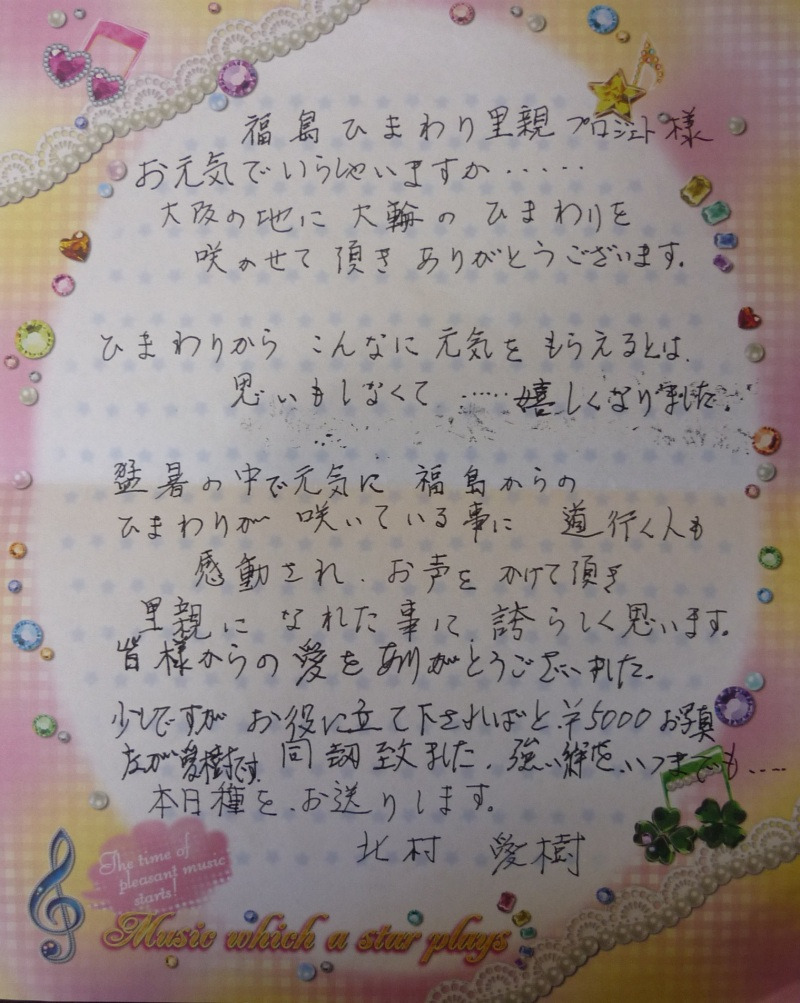 福島ひまわり里親プロジェクト様
お元気でいらしゃいますか・・・・・
大阪の地に大輪のひまわりを
咲かせて頂きありがとうございます。
ひまわりからこんなに元気をもらえるとは、
思いもしなくて……嬉しくなりました。
猛暑の中で元気に福島からの
ひまわりが咲いている事に道行く人も
感動され、お声をかけて頂き
里親になれた事に、誇らしく思います。
皆様からの愛をありがとうございました。
少しですがお役に立て下さればと¥5000お写真
左が愛樹です。同封致ました。強い絆を、いつまでも……
本日種を、お送りします。
北村 愛樹
The time of
pleasant music
starts!
Music which a star plays